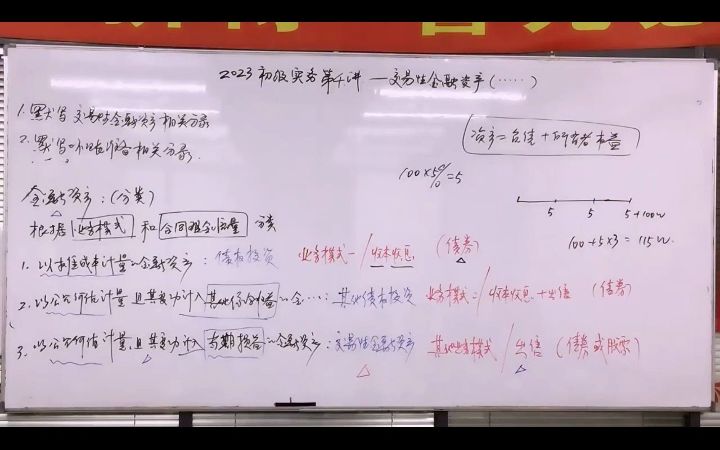 2023初级实务第4讲 — 交易性金融资产(……)
1. 默写交易性金融资产相关分录
2. 默写坏账准备相关分录.
资产=负债+所有者权益
100×5%=5
5 5 5+100w
100+5×3=115w.
金融资产:(分类)
根据 业务模式 和 合同现金流量 分类
1. 以摊余成本计量的金融资产:债权投资 业务模式一/收本收息 (债券)
2. 以公允价值计量且其变动计入其他综合收益的金…:其他债权投资 业务模式二/收本收息+出售 (债券)
3. 以公允价值计量,且其变动计入当期损益的金融资产:交易性金融资产 其他业务模式/出售 (债券或股票)